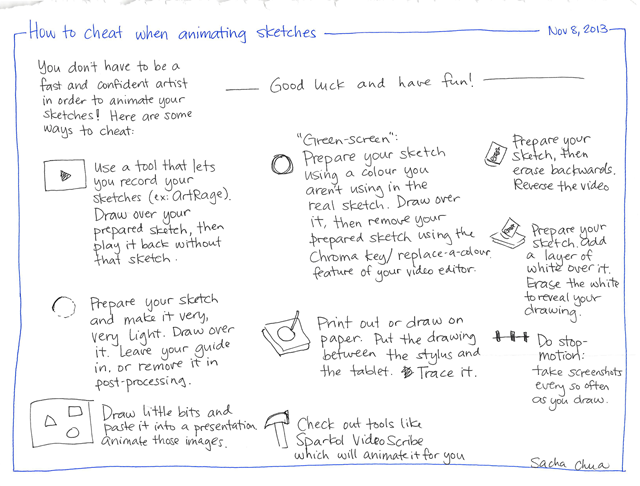 How to cheat when animating sketches
Nov 8, 2013
You don't have to be a
fast and confident artist
in order to animate your
sketches! Here are some
ways to cheat:
Good luck and have fun!
Use a tool that lets
you record your
sketches (ex: ArtRage).
Draw over your
prepared sketch, then
play it back without
that sketch.
Prepare your sketch
and make it very,
very light. Draw over
it. Leave your guide
in, or remove it in
post-processing.
Draw little bits and
paste it into a presentation
animate those images.
"Green-screen":
Prepare your sketch
using a colour you
aren't using in the
real sketch. Draw over
it, then remove your
prepared sketch using the
Chroma key/replace-a-colour
feature of your video editor.
Print out or draw on
paper. Put the drawing
between the stylus and
the tablet. Trace it.
Check out tools like
Sparkol VideoScribe
which will animate it for you
Prepare your
sketch, then
erase backwards.
Reverse the video
Prepare your
sketch. Add
a layer of
white over it.
Erase the white
to reveal your
drawing.
Do stop-
motion:
take screenshots
every so often
as you draw.
Sacha Chua